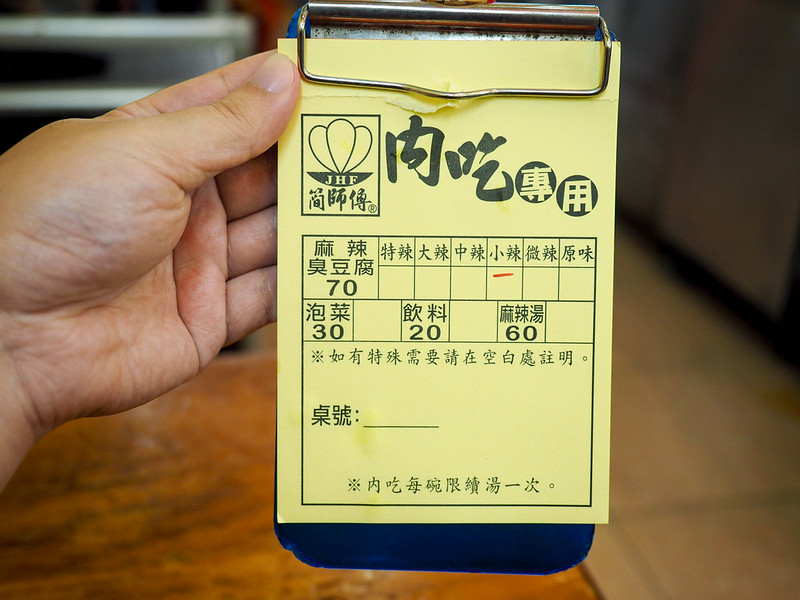 JHF
簡師傅®
內吃專用
麻辣臭豆腐 70 特辣 大辣 中辣 小辣 微辣 原味
泡菜 30 飲料 20 麻辣湯 60
※如有特殊需要請在空白處註明。
桌號:
※內吃每碗限續湯一次。